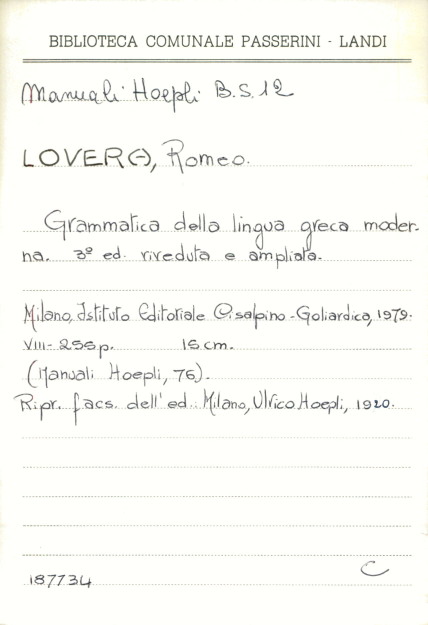 BIBLIOTECA COMUNALE PASSERINI - LANDI
Manuali Hoepli B.S.12
LOVER(A), Romeo.
Grammatica della lingua greca moder-
na. 3ª ed. riveduta e ampliata.
Milano, Istituto Editoriale Cisalpino-Goliardica, 1979.
VIII-255 p. 15 cm.
(Manuali Hoepli, 76).
Ripr. facs. dell'ed.: Milano, Ulrico Hoepli, 1920.
187734 C